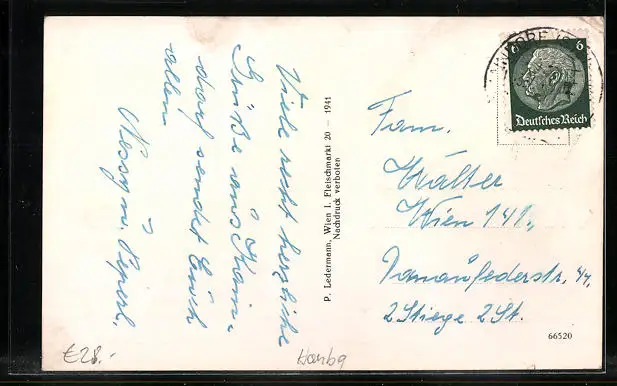 Viele recht herzliche
Grüße aus Kain-
dorf sendet Euch
allen
Messy u. Peperl.
P. Ledermann, Wien I. Fleischmarkt 20 – 1941
Nachdruck verboten
6 6
Deutsches Reich
Fam.
Walter
Wien 141.,
Donaufelderstr.
2 Stiege 2 St.
66520
€28.-